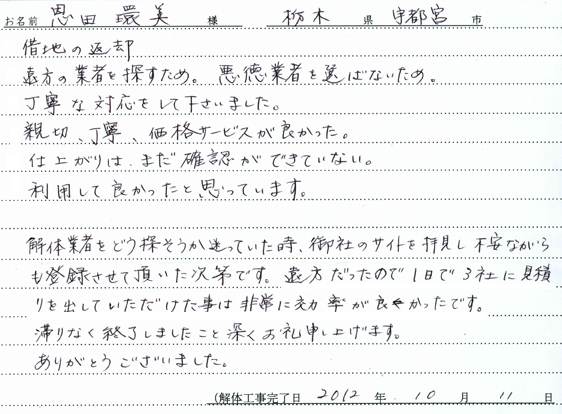 お名前 恩田 環美 様 栃木 県 宇都宮 市
借地の返却
遠方の業者を探すため。悪徳業者を選ばないため。
丁寧な対応をして下さいました。
親切、丁寧、価格サービスが良かった。
仕上がりは、まだ確認ができていない。
利用して良かったと思っています。
解体業者をどう探そうか迷っていた時、御社のサイトを拝見し不安ながら
も登録させて頂いた次第です。遠方だったので1日で3社に見積
りを出していただけた事は非常に効率が良くかったです。
滞りなく終了しましたこと深くお礼申し上げます。
ありがとうございました。
(解体工事完了日 2012 年 10 月 11 日